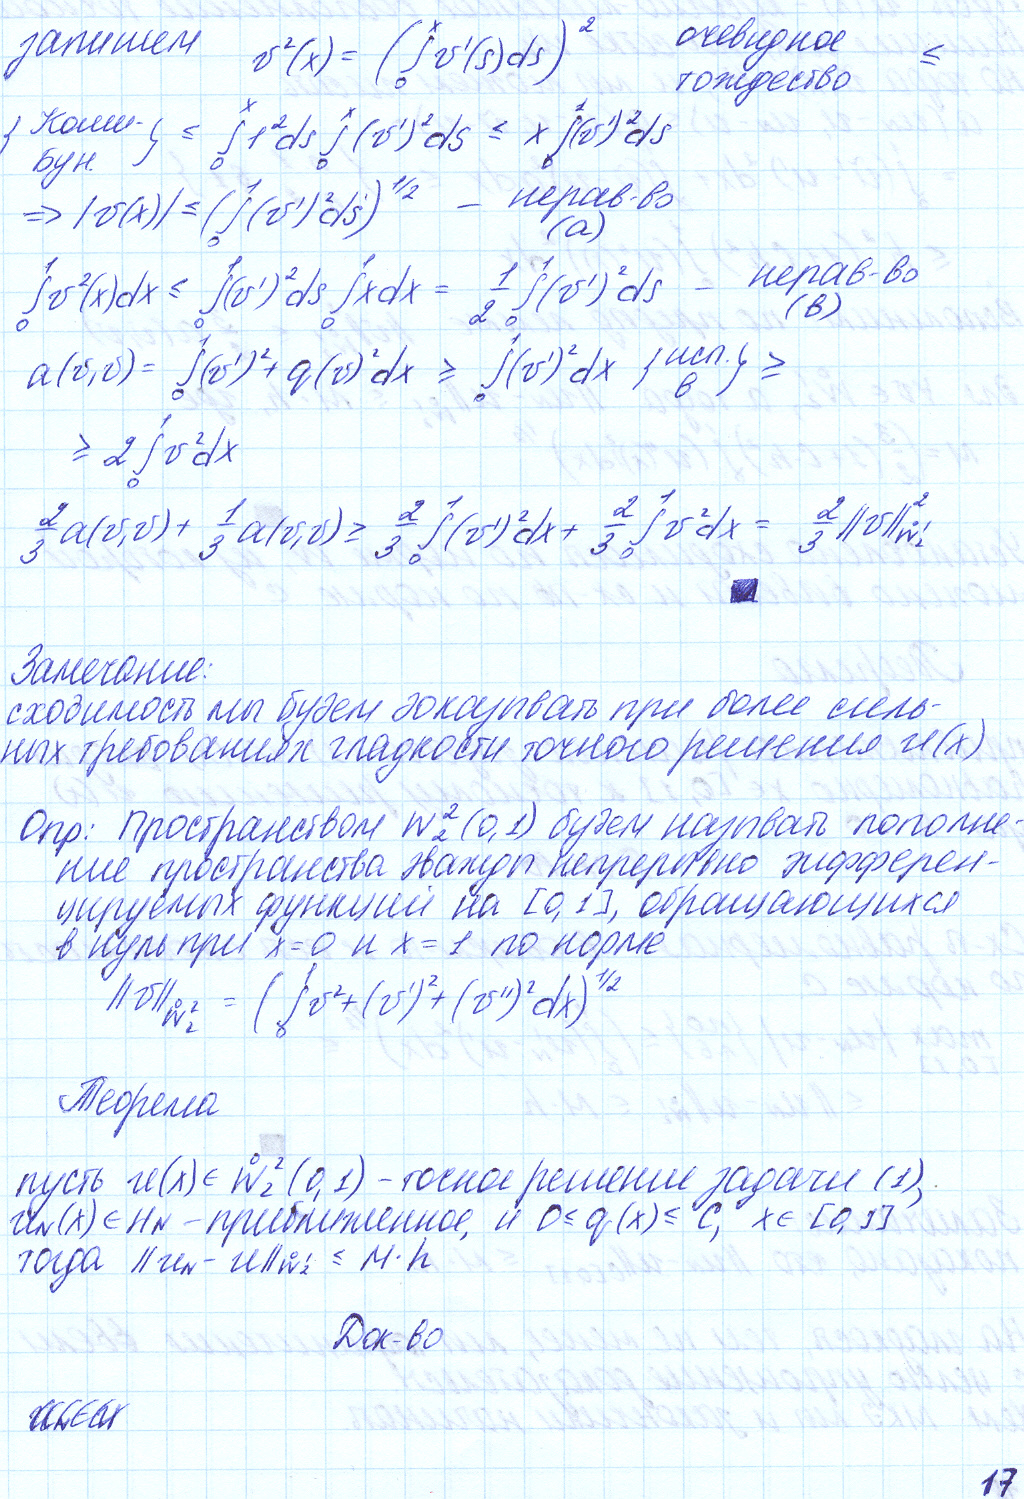 запишем v²(x) = (∫₀ˣ v'(s)ds)² очевидное тождество ≤
{Коши-Бун.} ≤ ∫₀ˣ 1²ds ∫₀ˣ (v')²ds ≤ x ∫₀¹ (v')²ds
=> |v(x)| ≤ (∫₀¹ (v')²ds)^{1/2} – нерав-во (а)
∫₀¹ v²(x)dx ≤ ∫₀¹ (v')²ds ∫₀¹ xdx = 1/2 ∫₀¹ (v')²ds – нерав-во (в)
a(v,v) = ∫₀¹ (v')² + q(v)²dx ≥ ∫₀¹ (v')²dx {исп. в} ≥
≥ 2 ∫₀¹ v²dx
2/3 a(v,v) + 1/3 a(v,v) ≥ 2/3 ∫₀¹ (v')²dx + 2/3 ∫₀¹ v²dx = 2/3 ‖v‖²_{W̊₂¹}
Замечание:
сходимость мы будем доказывать при более силь-
ных требованиях гладкости точного решения u(x)
Опр: Пространством W₂²(0,1) будем называть пополне-
ние пространства дважды непрерывно дифферен-
цируемых функций на [0,1], обращающихся
в нуль при x=0 и x=1 по норме
‖v‖_{W̊₂²} = (∫₀¹ v² + (v')² + (v'')² dx)^{1/2}
Теорема
пусть u(x) ∈ W̊₂²(0,1) – точное решение задачи (1),
u_N(x) ∈ H_N – приближенное, и 0 ≤ q(x) ≤ C, x ∈ [0,1]
тогда ‖u_N - u‖_{W̊₂¹} ≤ M·h
Док-во
17